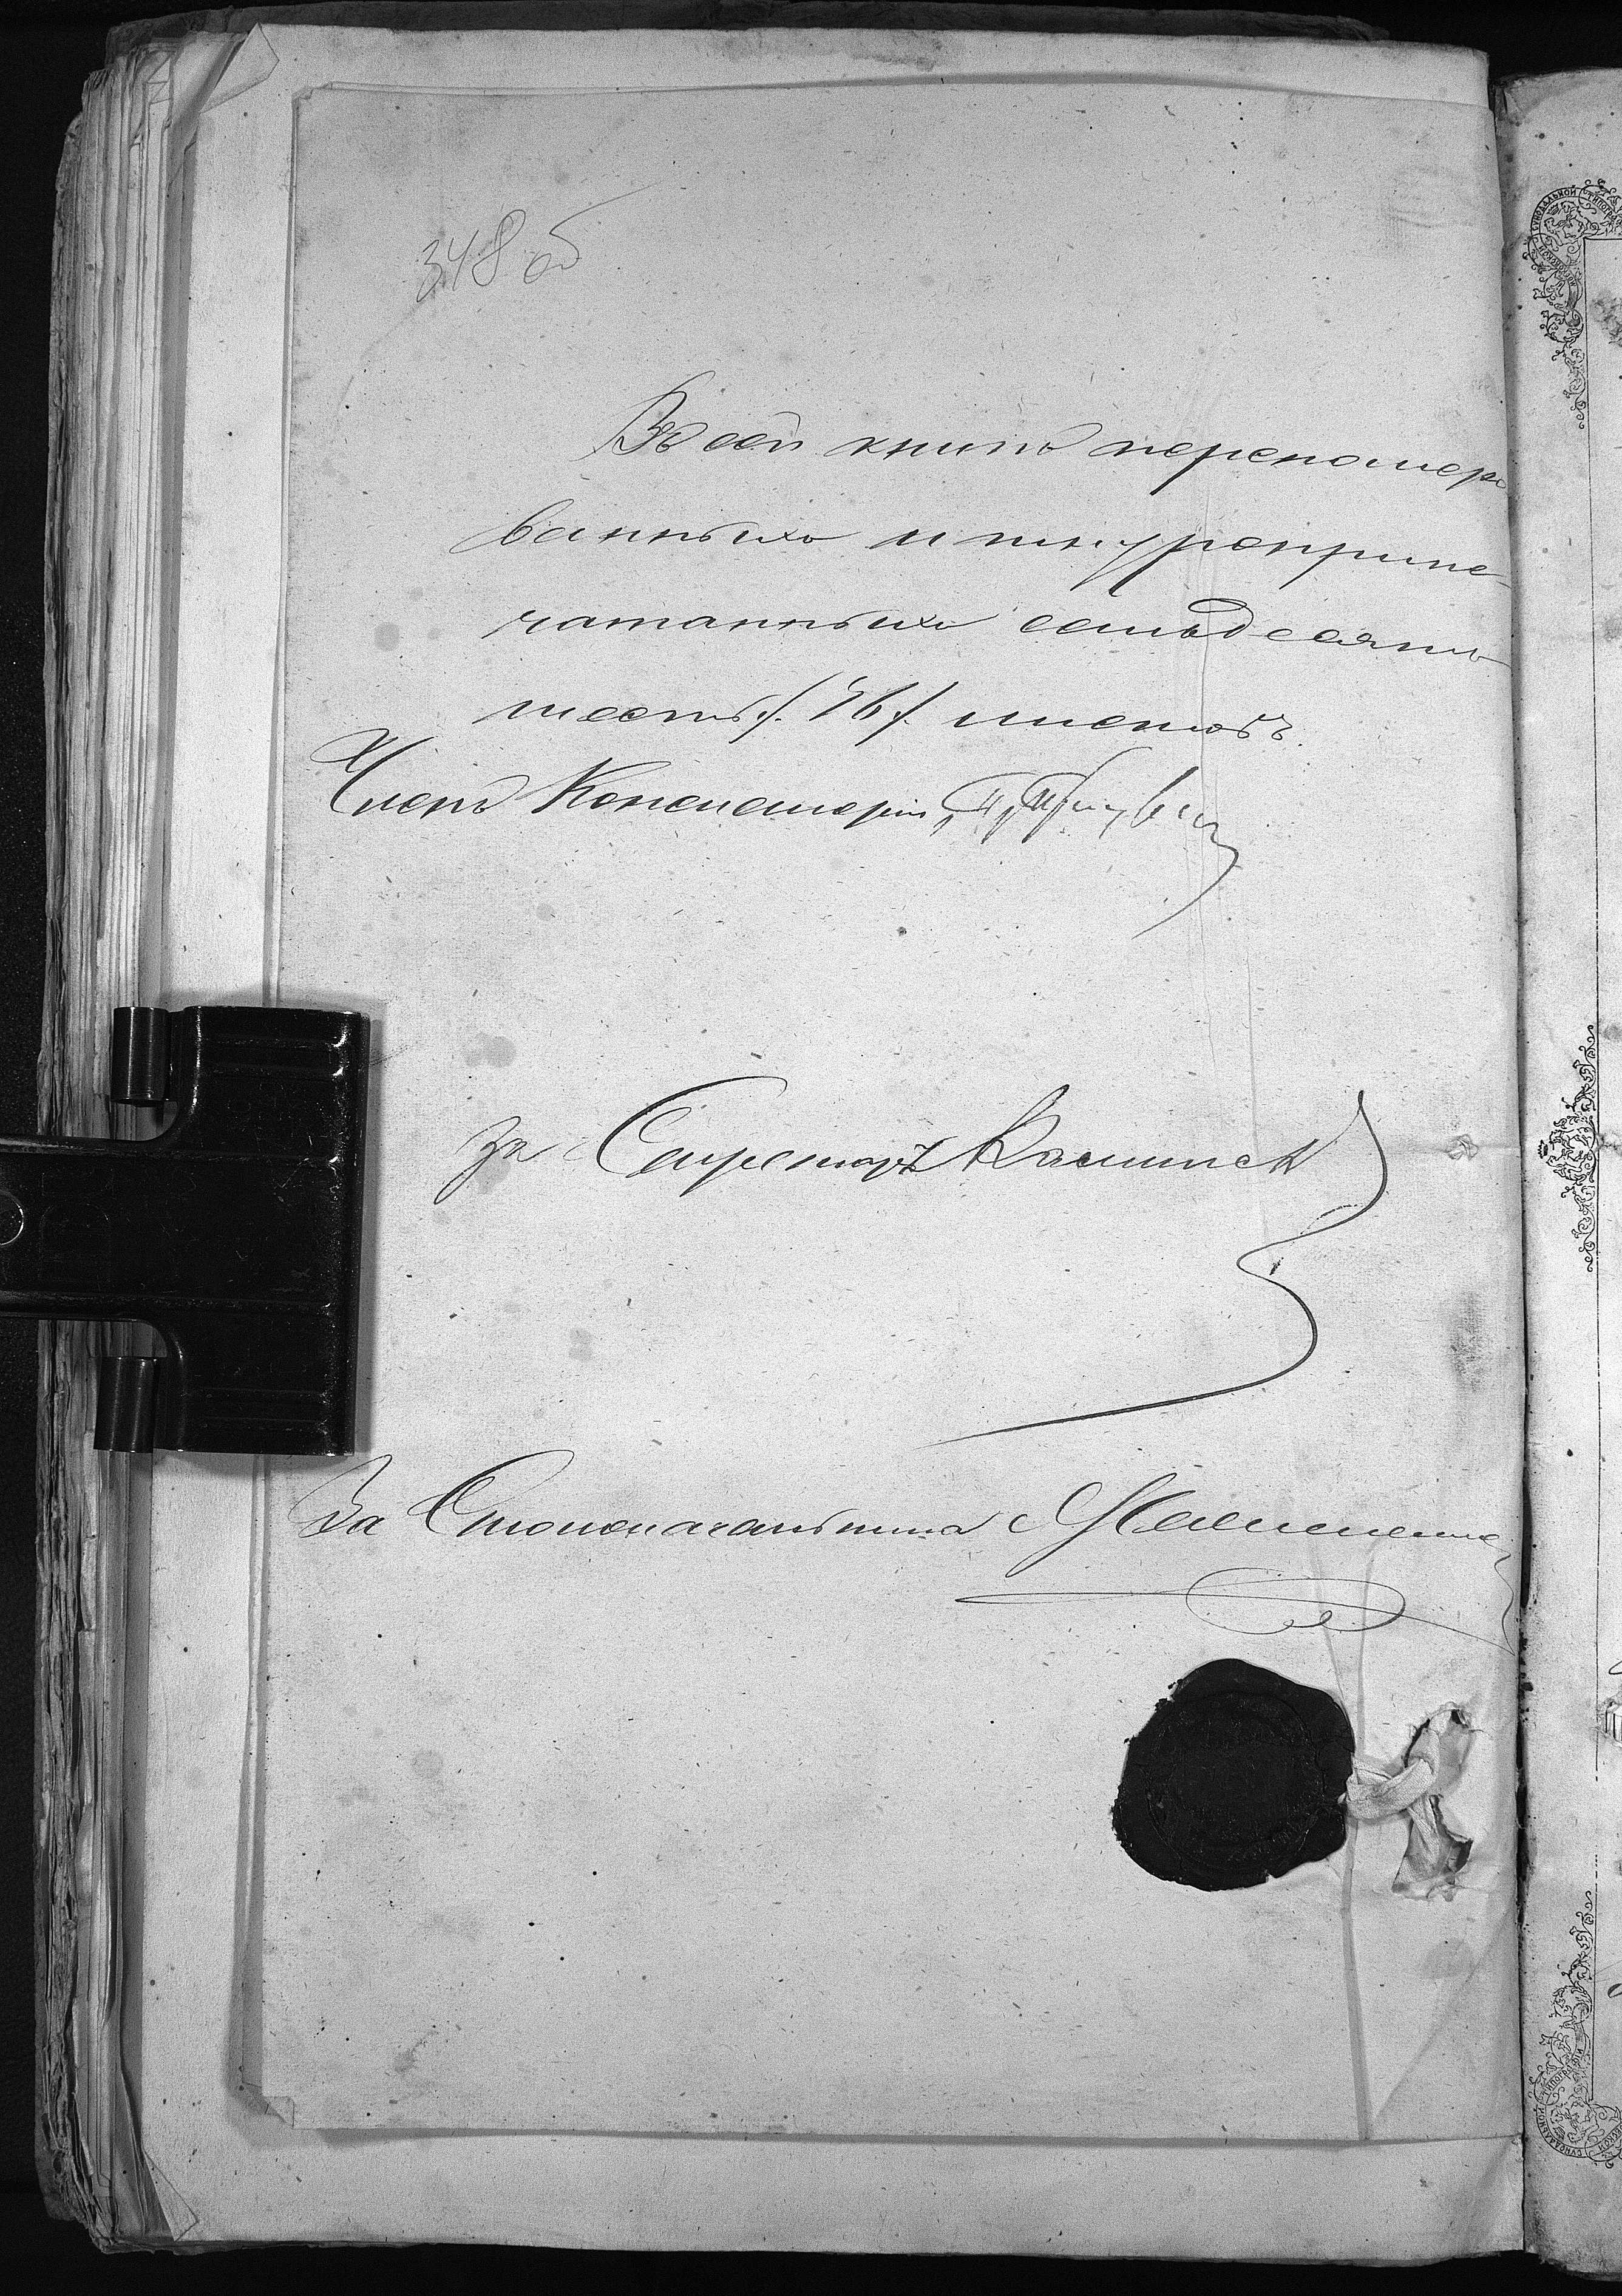 348 об
Въ сей книгѣ перенумеро
ванныхъ и шнуроприпе-
чатанныхъ семьдесятъ
шесть /. 76 /. листовъ.
Членъ Консисторіи
За Секретаря
За Столоначальника